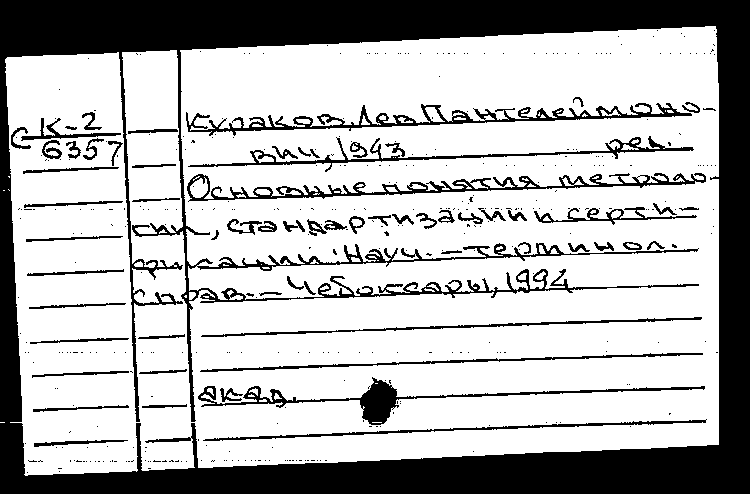 С К-2
6357
Кураков, Лев Пантелеймоно-
вич, 1943 ред.
Основные понятия метроло-
гии, стандартизации и серти-
фикации: Науч.-терминол.
справ.- Чебоксары, 1994
акад.